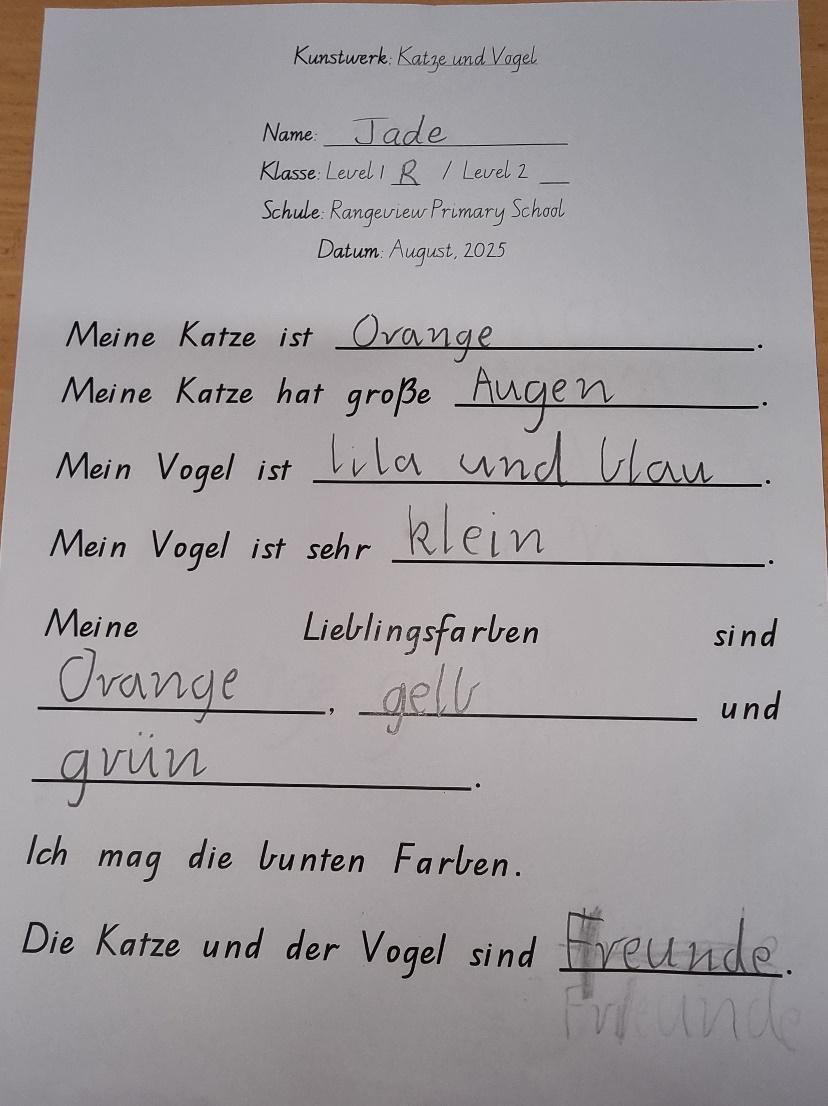 Kunstwerk: Katze und Vogel
Name: Jade
Klasse: Level 1 R / Level 2 __
Schule: Rangeview Primary School
Datum: August, 2025
Meine Katze ist Orange.
Meine Katze hat große Augen.
Mein Vogel ist lila und blau.
Mein Vogel ist sehr klein.
Meine Lieblingsfarben sind
Orange, gelb und
grün.
Ich mag die bunten Farben.
Die Katze und der Vogel sind Freunde.
Freunde